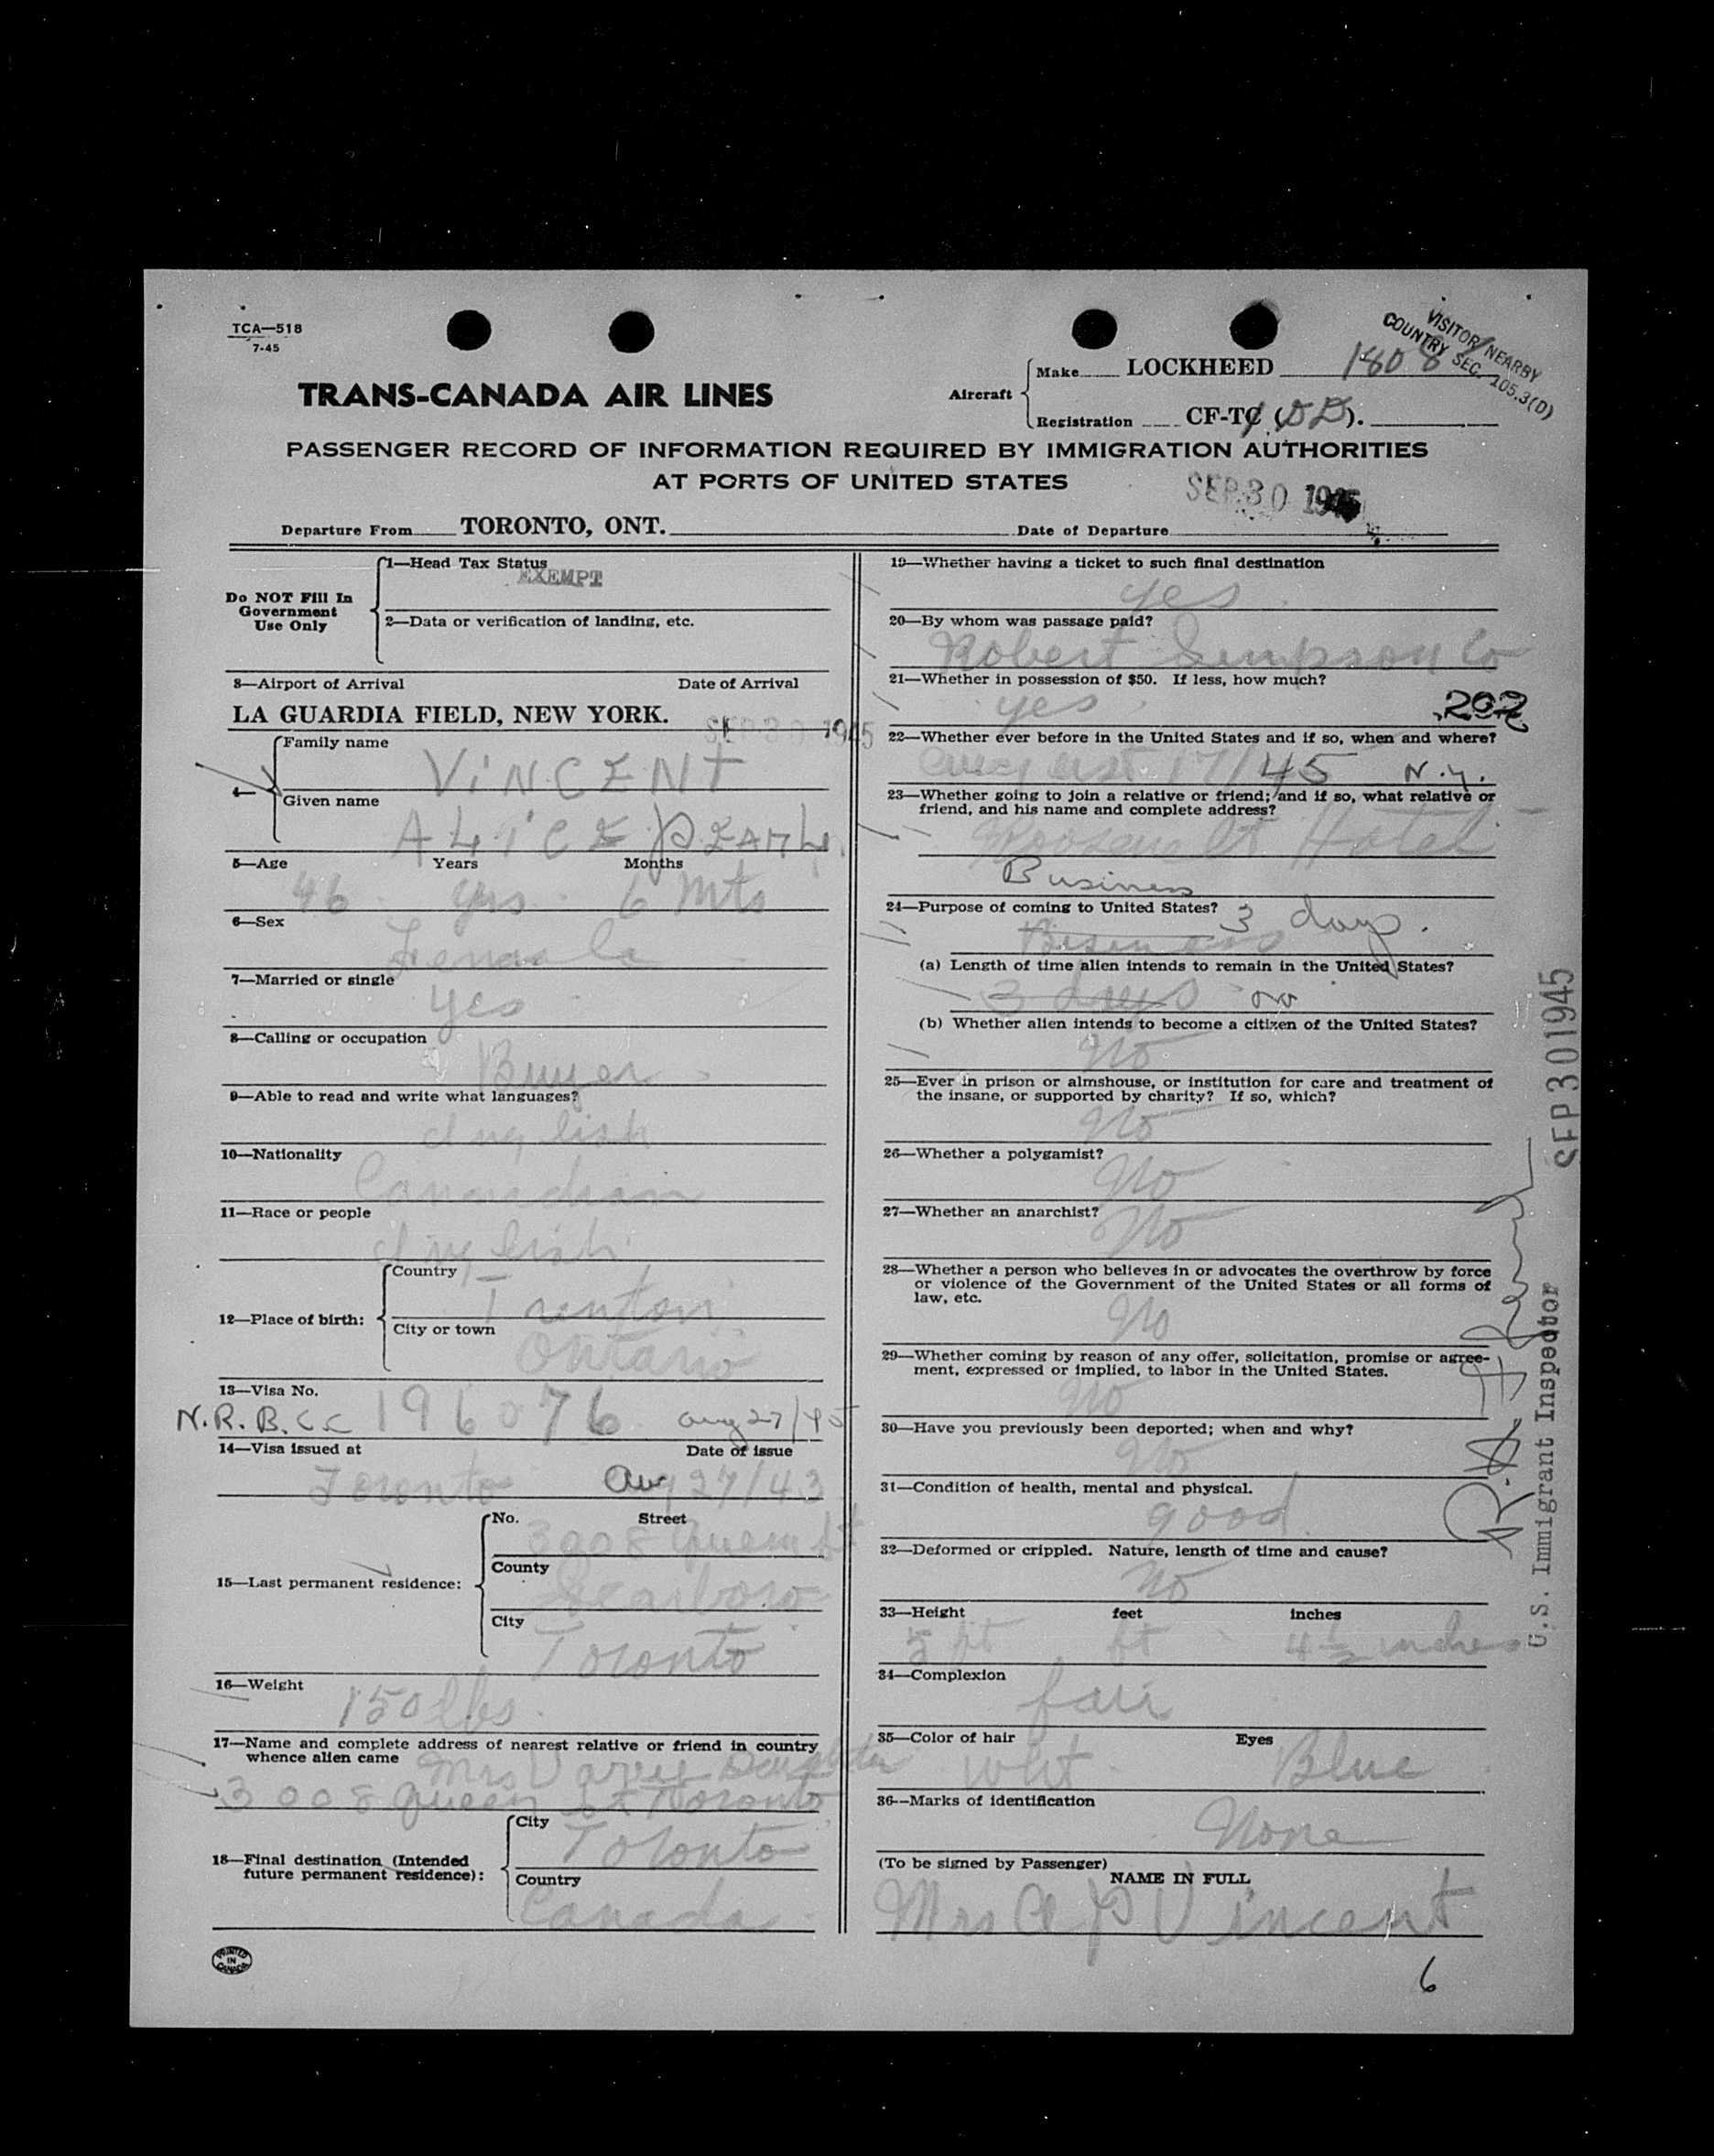 TCA—518
7-45
VISITOR NEARBY
COUNTRY SEC. 105.3(D)
TRANS-CANADA AIR LINES
Aircraft
Make LOCKHEED 1808
Registration CF-TC ( ).
PASSENGER RECORD OF INFORMATION REQUIRED BY IMMIGRATION AUTHORITIES
AT PORTS OF UNITED STATES
SEP 30 1945
Departure From TORONTO, ONT. Date of Departure
Do NOT Fill In
Government
Use Only
1—Head Tax Status
EXEMPT
2—Data or verification of landing, etc.
3—Airport of Arrival Date of Arrival
LA GUARDIA FIELD, NEW YORK. SEP 30 1945
4—
Family name
VINCENT
Given name
ALICE PEARL
5—Age Years Months
46 yrs. 6 Mts
6—Sex
Female
7—Married or single
yes
8—Calling or occupation
Buyer
9—Able to read and write what languages?
English
10—Nationality
Cannadian
11—Race or people
English
12—Place of birth:
Country
Trenton
City or town
Ontario
13—Visa No.
N.R.B.C.C 196076 Aug 27/45
14—Visa issued at Date of issue
Toronto Aug 27/43
15—Last permanent residence:
No. Street
3008 Queen St
County
Scarboro
City
Toronto
16—Weight
150 lbs.
17—Name and complete address of nearest relative or friend in country
whence alien came
Mrs Daughter
3008 Queen St Toronto
18—Final destination (Intended
future permanent residence):
City
Toronto
Country
Canada
PRINTED
IN
CANADA
19—Whether having a ticket to such final destination
yes
20—By whom was passage paid?
Robert Simpson Co
21—Whether in possession of $50. If less, how much?
yes 202
22—Whether ever before in the United States and if so, when and where?
August 17/45 N.Y.
23—Whether going to join a relative or friend; and if so, what relative or
friend, and his name and complete address?
Hotel
Business
24—Purpose of coming to United States? 3 days.
(a) Length of time alien intends to remain in the United States?
3 days no
(b) Whether alien intends to become a citizen of the United States?
No
25—Ever in prison or almshouse, or institution for care and treatment of
the insane, or supported by charity? If so, which?
No
26—Whether a polygamist?
No
27—Whether an anarchist?
No
28—Whether a person who believes in or advocates the overthrow by force
or violence of the Government of the United States or all forms of
law, etc.
No
29—Whether coming by reason of any offer, solicitation, promise or agree-
ment, expressed or implied, to labor in the United States.
No
30—Have you previously been deported; when and why?
No
31—Condition of health, mental and physical.
good
32—Deformed or crippled. Nature, length of time and cause?
No
33—Height feet inches
5 ft 4½ inches
34—Complexion
fair
35—Color of hair Eyes
Blue
36—Marks of identification
None
(To be signed by Passenger)
NAME IN FULL
Mrs A P Vincent
6
SEP 30 1945
U.S. Immigrant Inspector